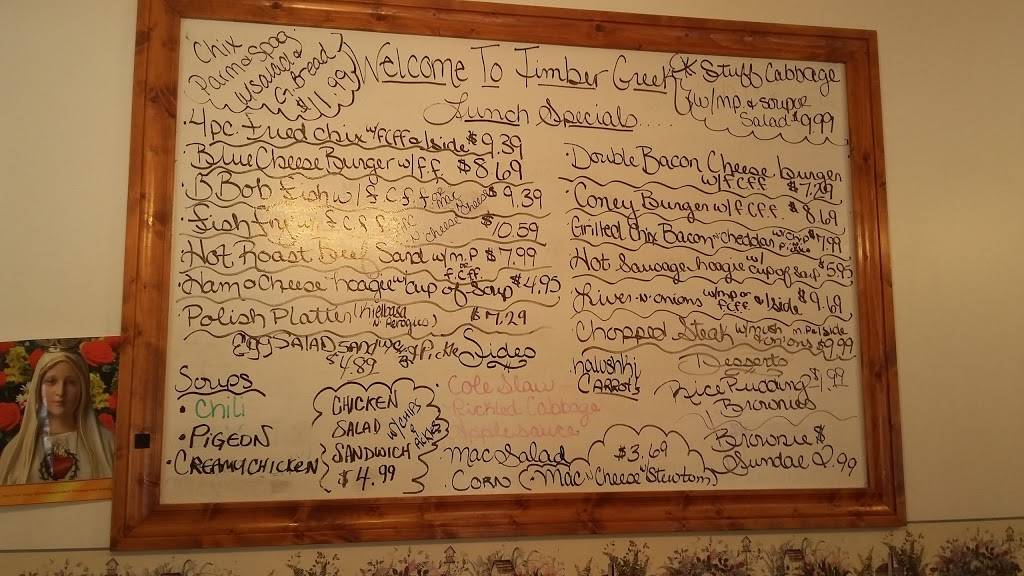 Chix
Parm & Spag
w/salad &
G. Bread
$11.99
Welcome To Timber Creek
* Stuff Cabbage
w/m.p. & soup or
Salad $9.99
Lunch Specials....
• 4pc. Fried chix w/FCFF & 1 side $9.39
Blue Cheese Burger w/ f.f. $8.69
• B. Bob Fish w/ f.c.f.f. $9.39
• Fish Fry w/ f.c.f.f. $10.59
Hot Roast Beef Sand w/ m.p $7.99
f.c.f.f
• Ham & Cheese hoagie w/ cup of Soup $4.95
Polish Plattir (Kielbasa
N. Peroguis) $7.29
Egg SALAD Sand
& Pickle
$4.89
• Double Bacon Cheese burger
w/ f.C.f.f. $7.29
• Coney Burger w/ f.C.f.f. $8.69
Grilled Chix Bacon & cheddar $7.99
Hot Sausage hoagie w/ cup of soup $5.95
Liver-N-onions w/mp or
f.c.f.f. & 1 side $9.69
Chopped Steak w/mush m.p 1 side
& onions $9.99
Soups
• Chili
• PIGEON
• CREAMY CHICKEN
CHICKEN
SALAD
w/ CHIPS
& Pickle
SANDWICH
$4.99
Sides
• Cole Slaw
Pickled Cabbage
Applesauce
Mac Salad
• CORN
halushki
CARROTS
$3.69
Mac "N" Cheese w/ Stewtom
Desserts
Rice Pudding $1.99
Brownies
Brownie $
Sundae 2.99